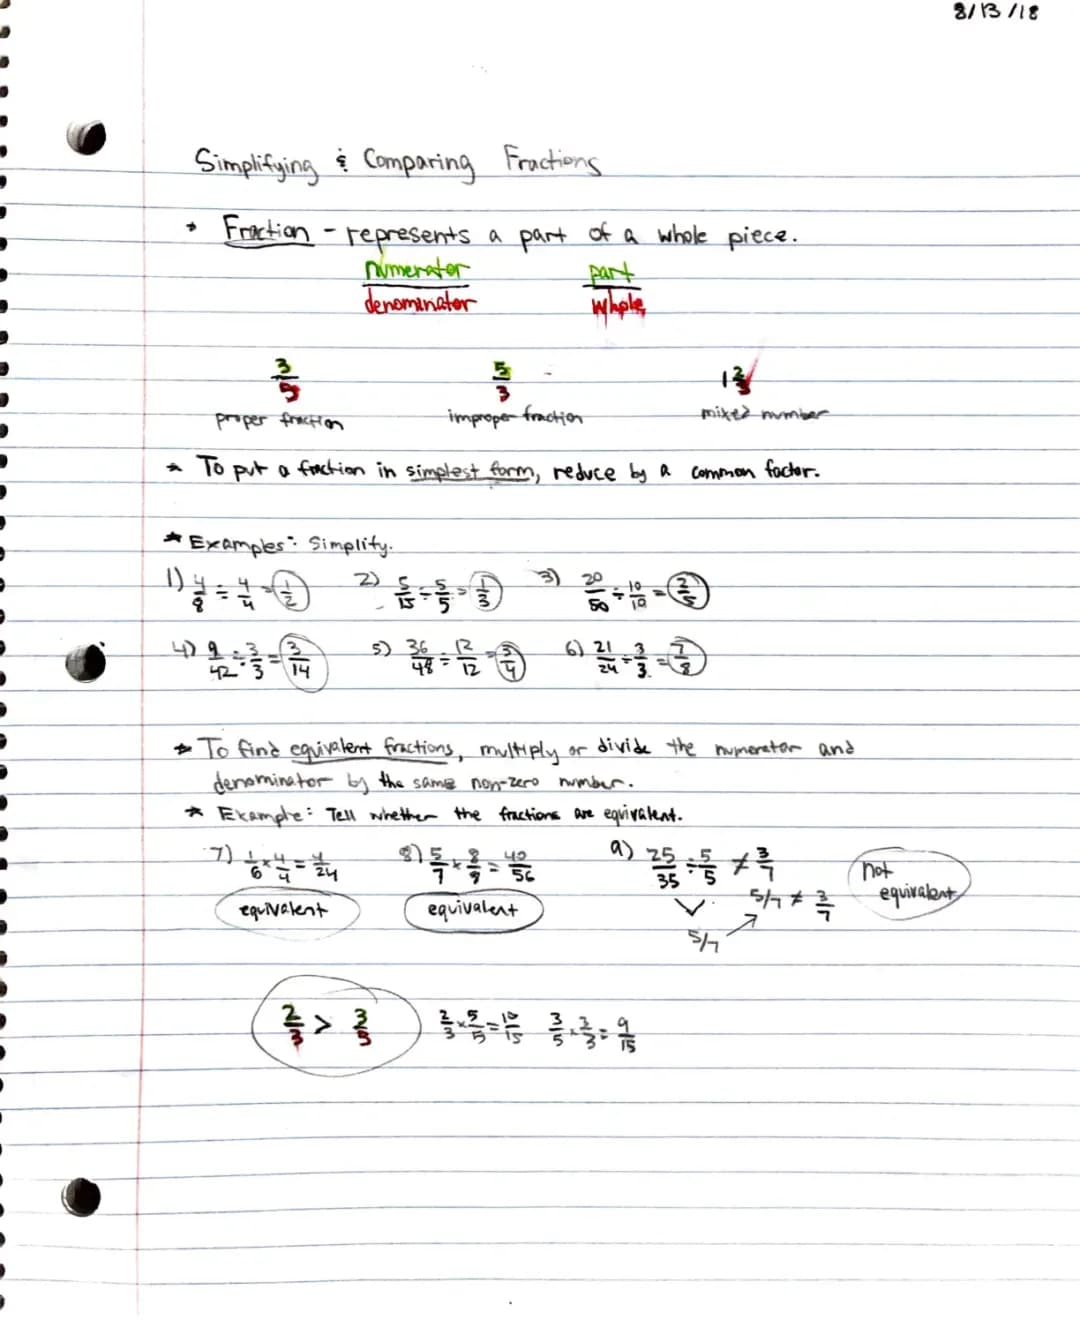 8/13/18
Simplifying & Comparing Fractions
* Fraction - represents a part of a whole piece.
numerator/denominator part/whole
3/5 5/3 1 2/3
proper fraction improper fraction mixed number
* To put a fraction in simplest form, reduce by a common factor.
* Examples: Simplify.
1) 4/8 ÷ 4/4 = 1/2 2) 5/15 ÷ 5/5 = 1/3 3) 20/50 ÷ 10/10 = 2/5
4) 9/42 ÷ 3/3 = 3/14 5) 36/48 ÷ 12/12 = 3/4 6) 21/24 ÷ 3/3 = 7/8
* To find equivalent fractions, multiply or divide the numerator and
denominator by the same non-zero number.
* Example: Tell whether the fractions are equivalent.
7) 1/6 × 4/4 = 4/24 8) 5/7 × 8/8 = 40/56 9) 25/35 ÷ 5/5 ≠ 3/7 not
equivalent equivalent 5/7 ≠ 3/7 equivalent
5/7
2/3 > 3/5 2/3 × 5/5 = 10/15 3/5 × 3/3 = 9/15